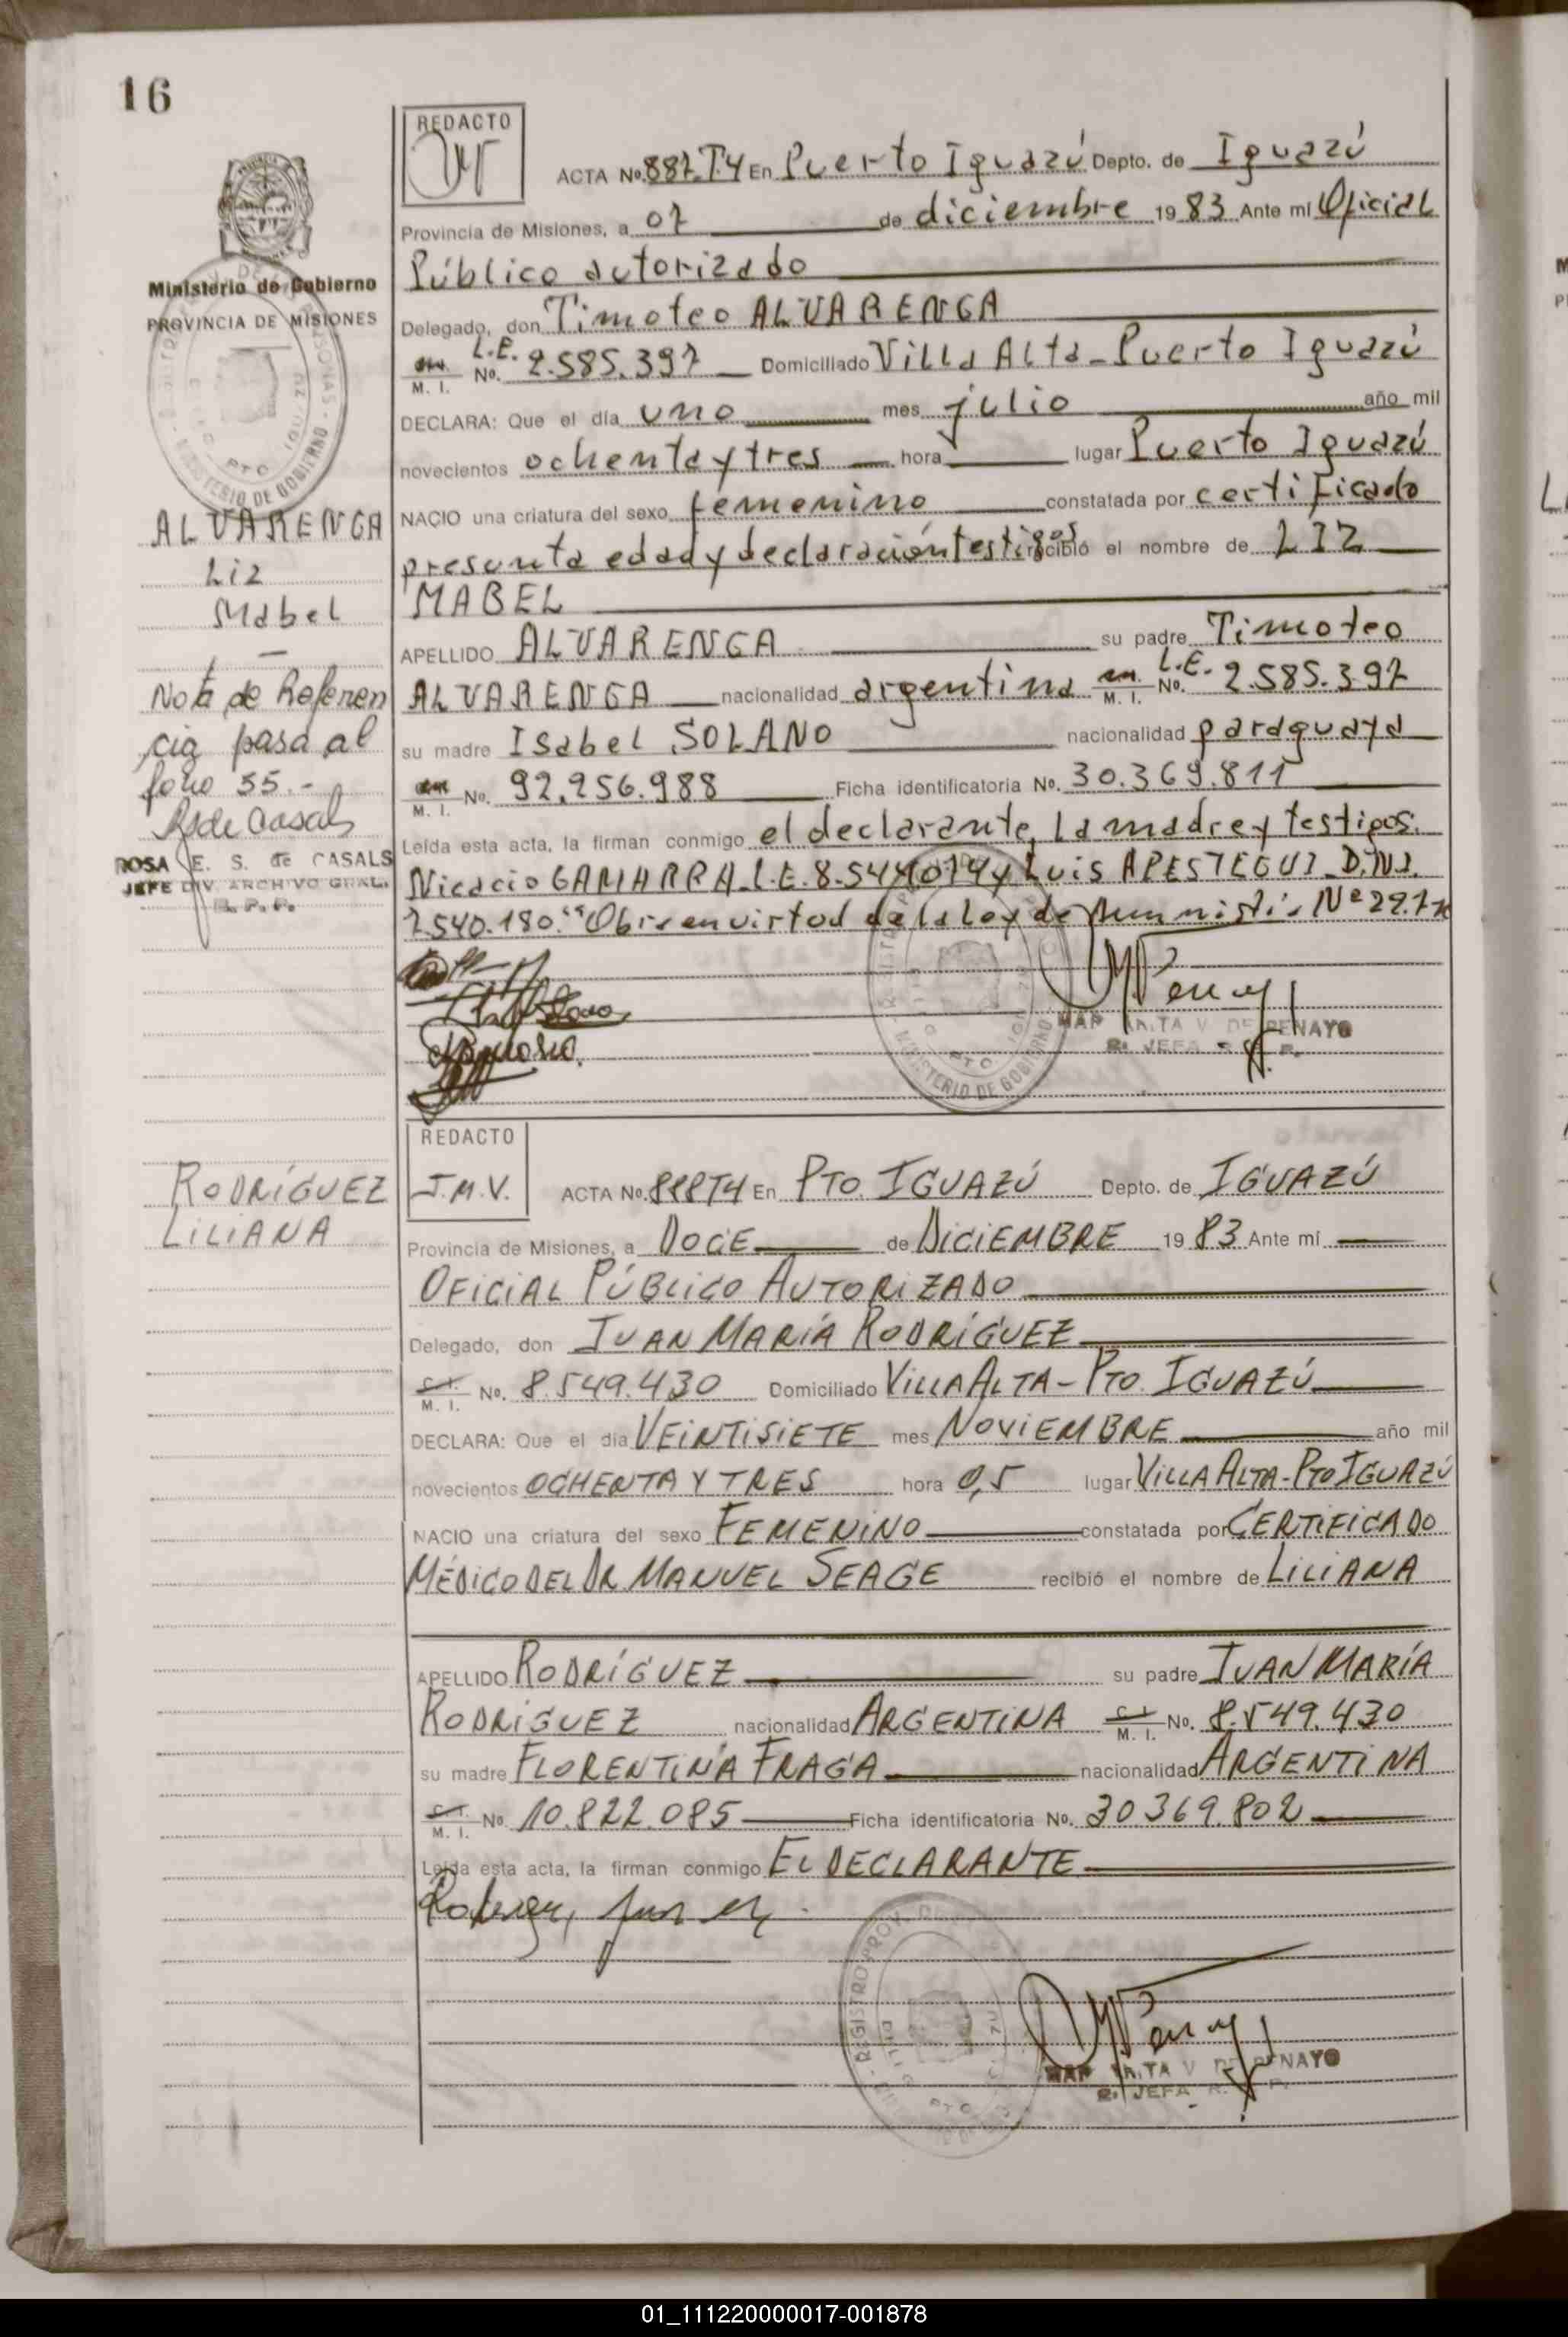 16
REDACTO
ACTA No. 887.T.4 En Puerto Iguazú Depto. de Iguazú
Provincia de Misiones, a 07 de diciembre 19 83 Ante mí Oficial
Público autorizado
Delegado, don Timoteo ALVARENGA
L.E.
M. I. No. 2.585.397 Domiciliado Villa Alta - Puerto Iguazú
DECLARA: Que el día uno mes julio año mil
novecientos ochenta y tres hora lugar Puerto Iguazú
NACIO una criatura del sexo femenino constatada por certificado
presunta edad y declaración testigos recibió el nombre de LIZ
MABEL
APELLIDO ALVARENGA su padre Timoteo
ALVARENGA nacionalidad argentina M. I. L.E. No. 2.585.397
su madre Isabel SOLANO nacionalidad paraguaya
M. I. No. 92.956.988 Ficha identificatoria No. 30.369.811
Leída esta acta, la firman conmigo el declarante, la madre y testigos.
Nicacio GAMARRA L.E. 8.544.014 y Luis APESTEGUI D.N.I.
7.540.180. Obs: en virtud de la Ley de Nº
Ministerio de Gobierno
PROVINCIA DE MISIONES
MINISTERIO DE GOBIERNO
PTO
ALVARENGA
Liz
Mabel
Nota de Referen
cia pasa al
folio 55.-
R S de Casals
ROSA E. S. de CASALS
JEFE DIV. ARCHIVO GRAL.
R. P. P.
MINISTERIO DE GOBIERNO
PTO
V DE PENAYO
JEFA
REDACTO
J.M.V.
ACTA No. 888T4 En PTO. IGUAZÚ Depto. de IGUAZÚ
Provincia de Misiones, a DOCE de DICIEMBRE 19 83 Ante mí
OFICIAL PÚBLICO AUTORIZADO
Delegado, don JUAN MARÍA RODRÍGUEZ
C. I.
M. I. No. 8.549.430 Domiciliado VILLA ALTA - PTO. IGUAZÚ
DECLARA: Que el día VEINTISIETE mes NOVIEMBRE año mil
novecientos OCHENTA Y TRES hora 0,5 lugar VILLA ALTA - PTO IGUAZÚ
NACIO una criatura del sexo FEMENINO constatada por CERTIFICADO
MÉDICO DEL DR MANUEL SEAGE recibió el nombre de LILIANA
APELLIDO RODRÍGUEZ su padre JUAN MARÍA
RODRÍGUEZ nacionalidad ARGENTINA C. I. M. I. No. 8.549.430
su madre FLORENTINA FRAGA nacionalidad ARGENTINA
C. I. M. I. No. 10.822.085 Ficha identificatoria No. 30369.802
Leída esta acta, la firman conmigo EL DECLARANTE
RODRÍGUEZ
LILIANA
REGISTRO PROV.
PTO
V DE PENAYO
JEFA
01_111220000017-001878